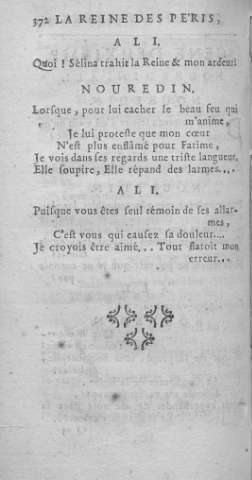 372 LA REINE DES PERIS,
ALI.
Quoi! Sélina trahit la Reine & mon ardeur!
NOUREDIN.
Lorsque, pour lui cacher le beau feu qui
m'anime,
Je lui proteste que mon cœur
N'est plus enflâmé pour Fatime,
Je vois dans ses regards une triste langueur,
Elle soupire, Elle répand des larmes...
ALI.
Puisque vous êtes seul témoin de ses allar-
mes,
C'est vous qui causez sa douleur....
Je croyois être aimé... Tout flatoit mon
erreur...